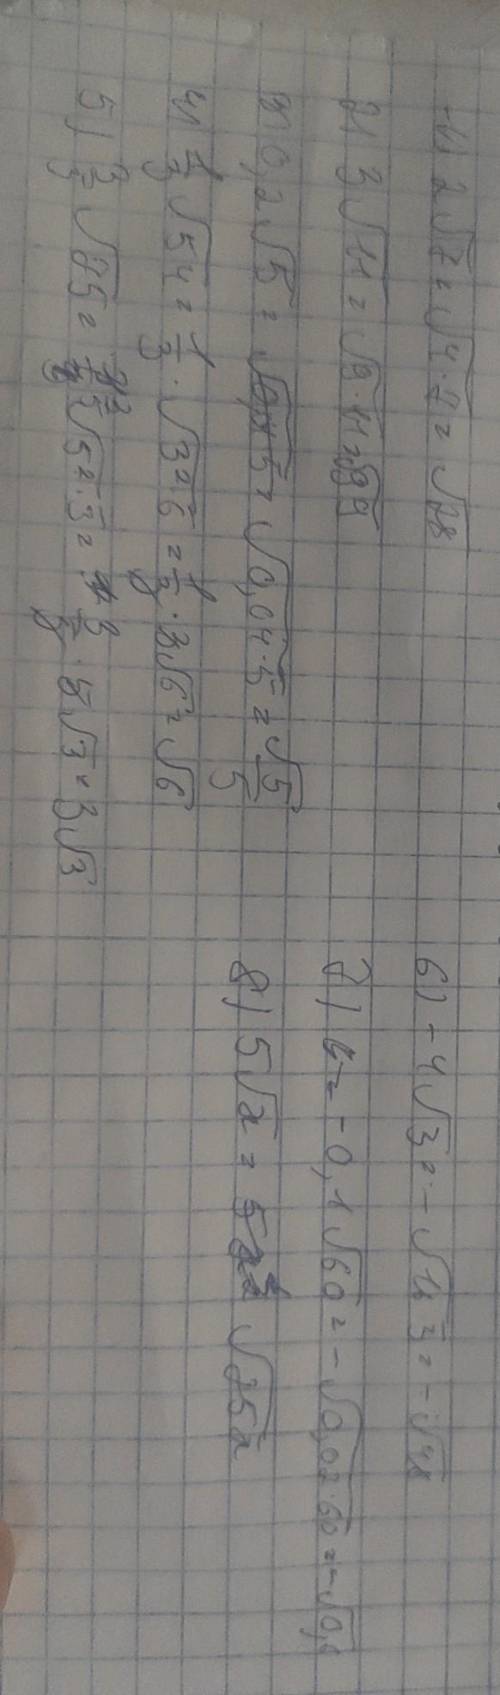 1) 2√7 = √4·7 = √28
2) 3√11 = √9·11 = √99
3) 0,2√5 = √0,04·5 = √5/5
4) 1/3 √54 = 1/3 · √3²·6 = 1/3 · 3√6 = √6
5) 3/5 √75 = 3/5 √5²·3 = 3/5 · 5√3 = 3√3
6) -4√3 = -√16·3 = -√48
7) -0,1√60 = -√0,01·60 = -√0,6
8) 5√x = √25x